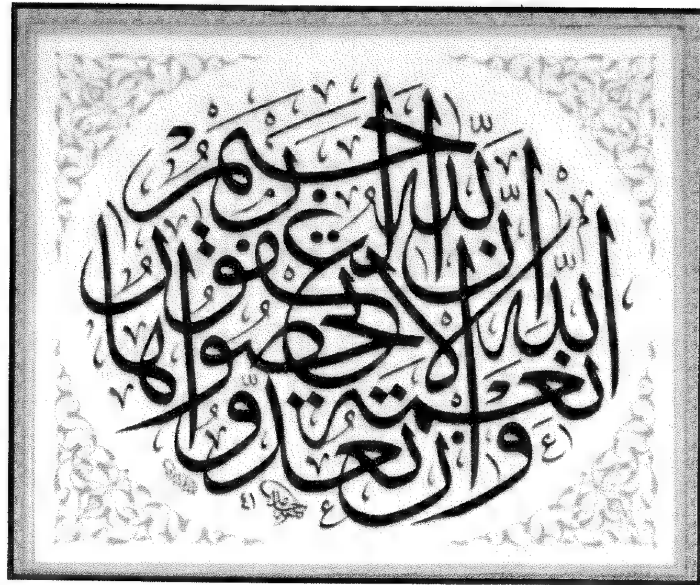 وَإِن تَعُدُّوا
نِعْمَةَ اللَّهِ
لَا تُحْصُوهَا
إِنَّ اللَّهَ لَغَفُورٌ
رَحِيمٌ